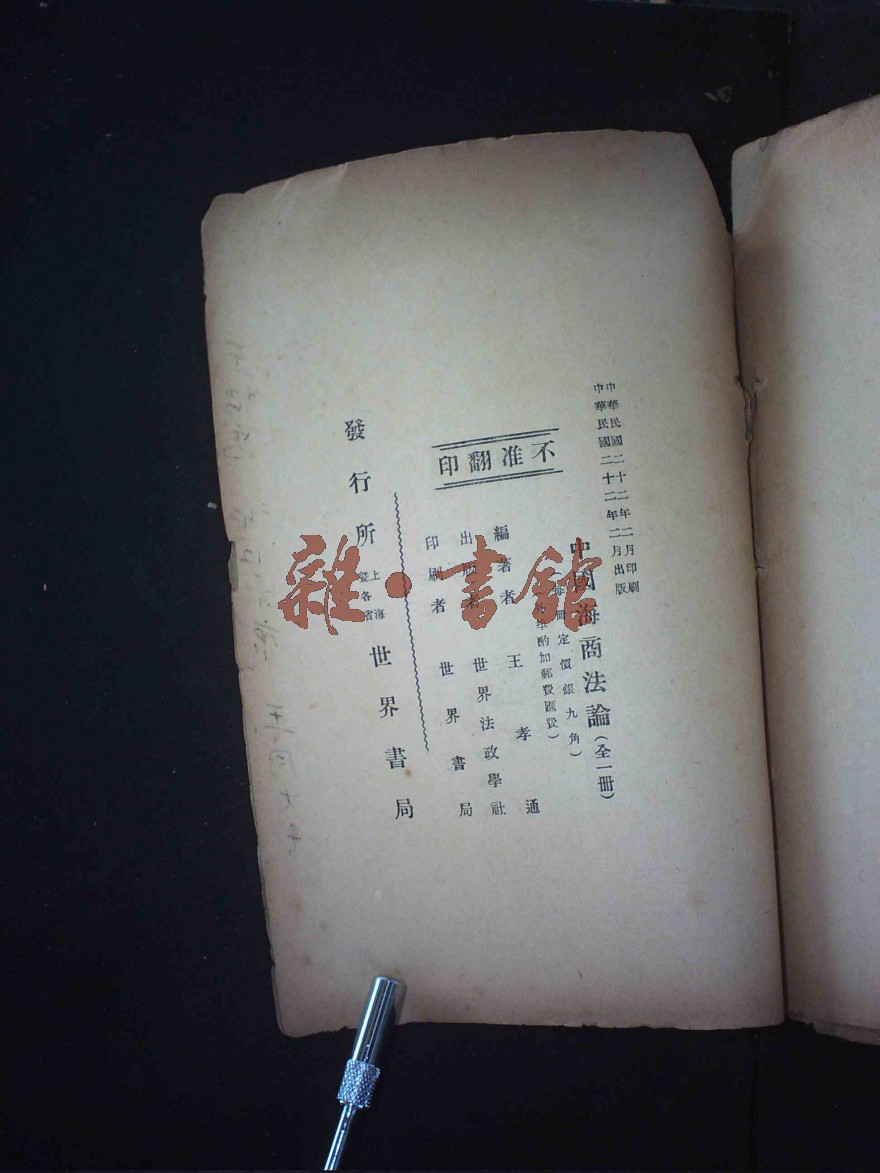 中華民國二十二年二月印刷
中華民國二十二年二月出版
中國海商法論（全一冊）
每冊定價銀九角）
酌加郵費匯費）
編著者 王孝通
出版者 世界法政學社
印刷者 世界書局
不准翻印
發行所 上海各省 世界書局
雜·書館